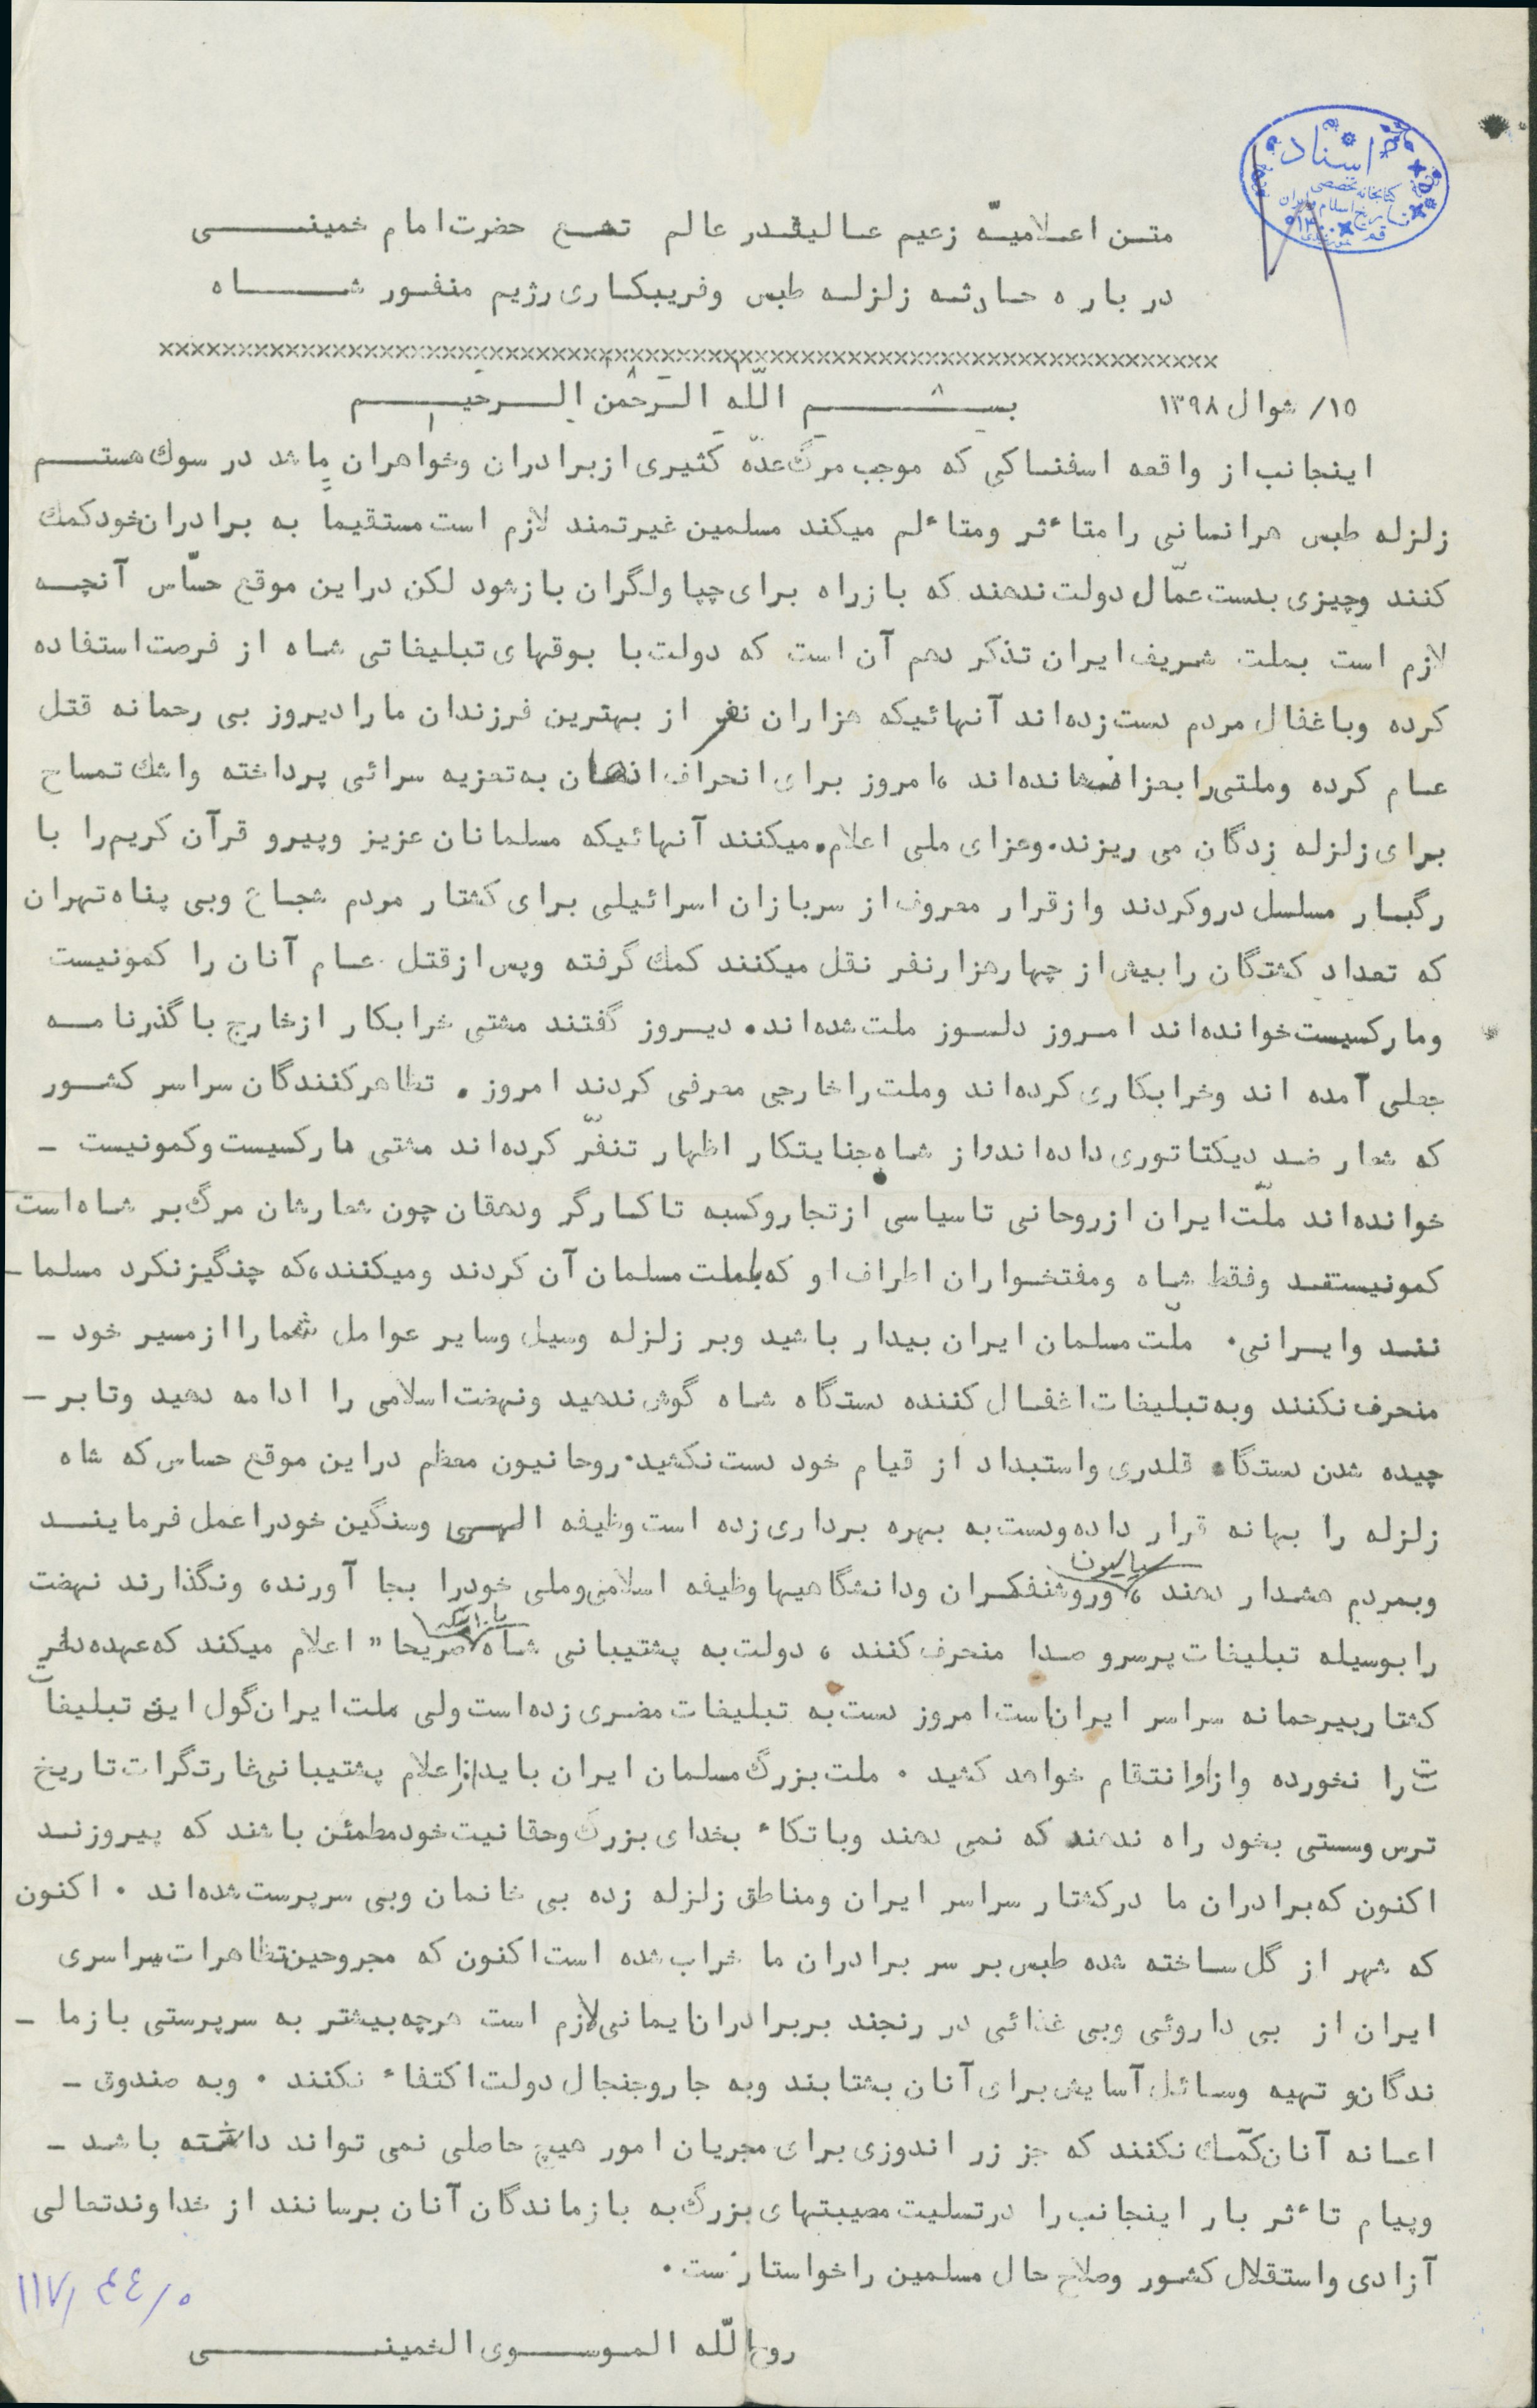 اسناد
کتابخانه تخصصی
تاریخ اسلام و ایران
قم
متن اعلامیّه زعیم عالیقدر عالم تشیع حضرت امام خمینی
در باره حادثه زلزله طبس وفریبکاری رژیم منفور شاه
xxxxxxxxxxxxxxxxxxxxxxxxxxxxxxxxxxxxxxxxxxxxxxxxxxxxxxxxxxxxxxxxxxxx
۱۵/ شوال ۱۳۹۸ بسم اللّه الرّحمن الرحیم
اینجانب از واقعه اسفناکی که موجب مرگ عدّه کثیری از برادران وخواهران ما شد در سوك هستم
زلزله طبس هر انسانی را متاٴثر ومتاٴلم میکند مسلمین غیرتمند لازم است مستقیماً به برادران خود کمك
کنند وچیزی بدست عمّال دولت ندهند که باز راه برای چپاولگران باز شود لکن در این موقع حسّاس آنچه
لازم است بملت شریف ایران تذکر دهم آن است که دولت با بوقهای تبلیغاتی شاه از فرصت استفاده
کرده وباغفال مردم دست زده‌اند آنهائیکه هزاران نفر از بهترین فرزندان ما را دیروز بی رحمانه قتل
عام کرده وملتی را بعزا نشانده‌اند ، امروز برای انحراف اذهان به تعزیه سرائی پرداخته واشك تمساح
برای زلزله زدگان می ریزند. وعزای ملی اعلام میکنند آنهائیکه مسلمانان عزیز وپیرو قرآن کریم را با
رگبار مسلسل درو کردند واز قرار معروف از سربازان اسرائیلی برای کشتار مردم شجاع وبی پناه تهران
که تعداد کشتگان را بیش از چهار هزار نفر نقل میکنند کمك گرفته وپس از قتل عام آنان را کمونیست
ومارکسیست خوانده‌اند امروز دلسوز ملت شده‌اند. دیروز گفتند مشتی خرابکار از خارج با گذرنامه
جعلی آمده اند وخرابکاری کرده‌اند وملت را خارجی معرفی کردند امروز . تظاهر کنندگان سراسر کشور
که شعار ضد دیکتاتوری داده‌اند واز شاه جنایتکار اظهار تنفّر کرده‌اند مشتی مارکسیست وکمونیست -
خوانده‌اند ملّت ایران از روحانی تا سیاسی از تجار وکسبه تا کارگر ودهقان چون شعارشان مرگ بر شاه است
کمونیستند وفقط شاه ومفتخواران اطراف او که با ملت مسلمان آن کردند ومیکنند، که چنگیز نکرد مسلما-
نند وایرانی. ملّت مسلمان ایران بیدار باشید وبر زلزله وسیل وسایر عوامل شما را از مسیر خود -
منحرف نکنند وبه تبلیغات اغفال کننده دستگاه شاه گوش ندهید ونهضت اسلامی را ادامه دهید وتا بر -
چیده شدن دستگاه قلدری واستبداد از قیام خود دست نکشید. روحانیون معظم در این موقع حساس که شاه
زلزله را بهانه قرار داده ودست به بهره برداری زده است وظیفه الهی وسنگین خود را عمل فرمایند
وبمردم هشدار دهند ، سیاسیون وروشنفکران ودانشگاهیها وظیفه اسلامی وملی خود را بجا آورند، ونگذارند نهضت
را بوسیله تبلیغات پر سر و صدا منحرف کنند ، دولت به پشتیبانی شاه با اینکه صریحا" اعلام میکند که عهده دار
کشتار بیرحمانه سراسر ایران است امروز دست به تبلیغات مضری زده است ولی ملت ایران گول این تبلیغات
را نخورده واز او انتقام خواهد کشید . ملت بزرگ مسلمان ایران باید از اعلام پشتیبانی غارتگرات تاریخ
ترس وسستی بخود راه ندهند که نمی دهند وباتکاء بخدای بزرگ وحقانیت خود مطمئن باشند که پیروزند
اکنون که برادران ما در کشتار سراسر ایران ومناطق زلزله زده بی خانمان وبی سرپرست شده‌اند . اکنون
که شهر از گل ساخته شده طبس بر سر برادران ما خراب شده است اکنون که مجروحین تظاهرات سراسری
ایران از بی داروئی وبی غذائی در رنجند بر برادران ایمانی لازم است هرچه بیشتر به سرپرستی بازما -
ندگان و تهیه وسائل آسایش برای آنان بشتابند وبه جار وجنجال دولت اکتفاء نکنند . وبه صندوق -
اعانه آنان کمك نکنند که جز زر اندوزی برای مجریان امور هیچ حاصلی نمی تواند داشته باشد -
وپیام تاٴثر بار اینجانب را در تسلیت مصیبتهای بزرگ به بازماندگان آنان برسانند از خداوند تعالی
آزادی واستقلال کشور وصلاح حال مسلمین را خواستار است.
روح اللّه الموسوی الخمینی